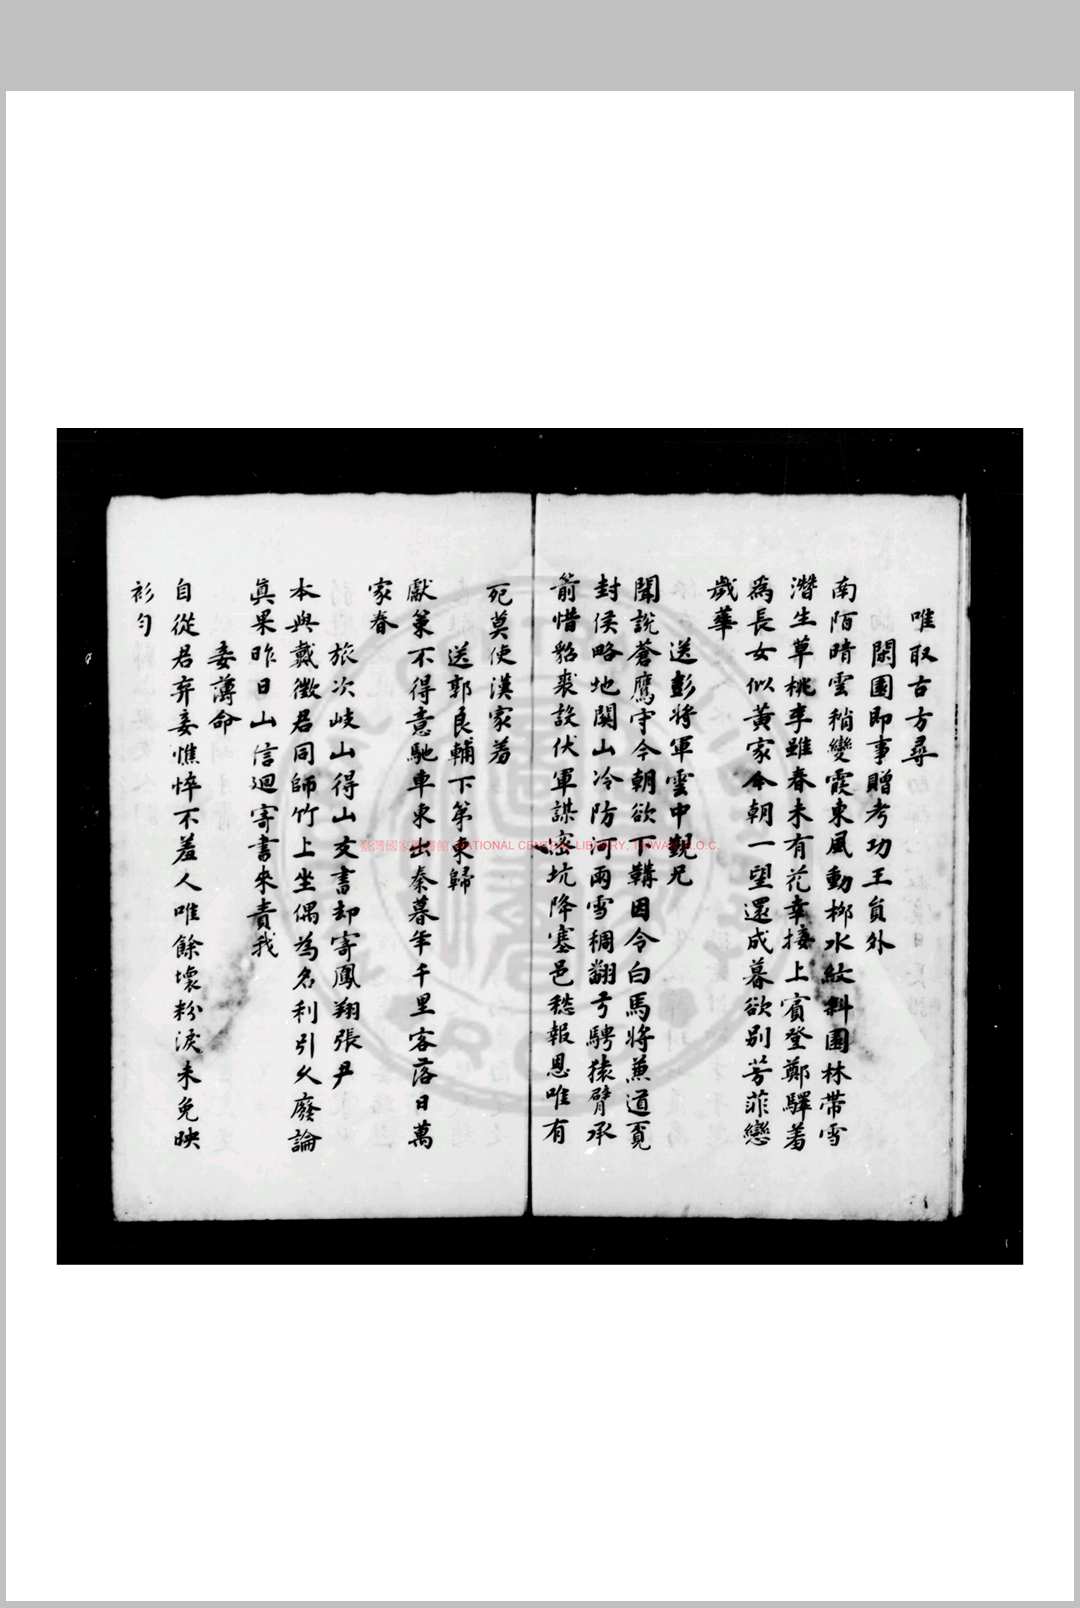 唯取古方尋
閑園即事贈考功王員外
南陌晴雲稍變霞東風動栁水紋斜園林帶雪
潛生草桃李雖春未有花幸接上賓登鄭驛羞
為長女似黃家今朝一望還成暮欲別芳菲戀
歲華
送彭将軍雲中覲兄
聞說蒼鷹守今朝欲下鞲因令白馬将兼道覓
封侯略地関山冷防河雨雪稠翻弓騁猿臂承
箭惜貂裘設伏軍謀密坑降塞邑愁報恩唯有
死莫使漢家羞
送郭良輔下第東歸
獻策不得意馳車東出秦暮年千里客落日萬
家春
旅次岐山得山友書却寄鳳翔張尹
本與戴徵君同師竹上坐偶為名利引久廢論
真果昨日山信廻寄書來責我
妾薄命
自從君弃妾憔悴不羞人唯餘壞粉淚未免映
衫勻
臺灣國家圖書館 NATIONAL CENTRAL LIBRARY, TAIWAN R.O.C.